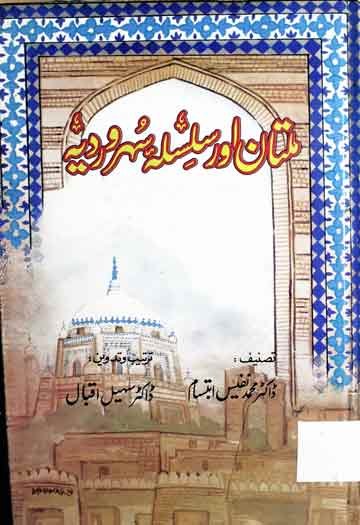 ملتان اور سلسلۂ سہروردیہ
تصنیف:
ڈاکٹر محمد نفیس ابتسام
ترتیب و تدوین:
ڈاکٹر سہیل اقبال